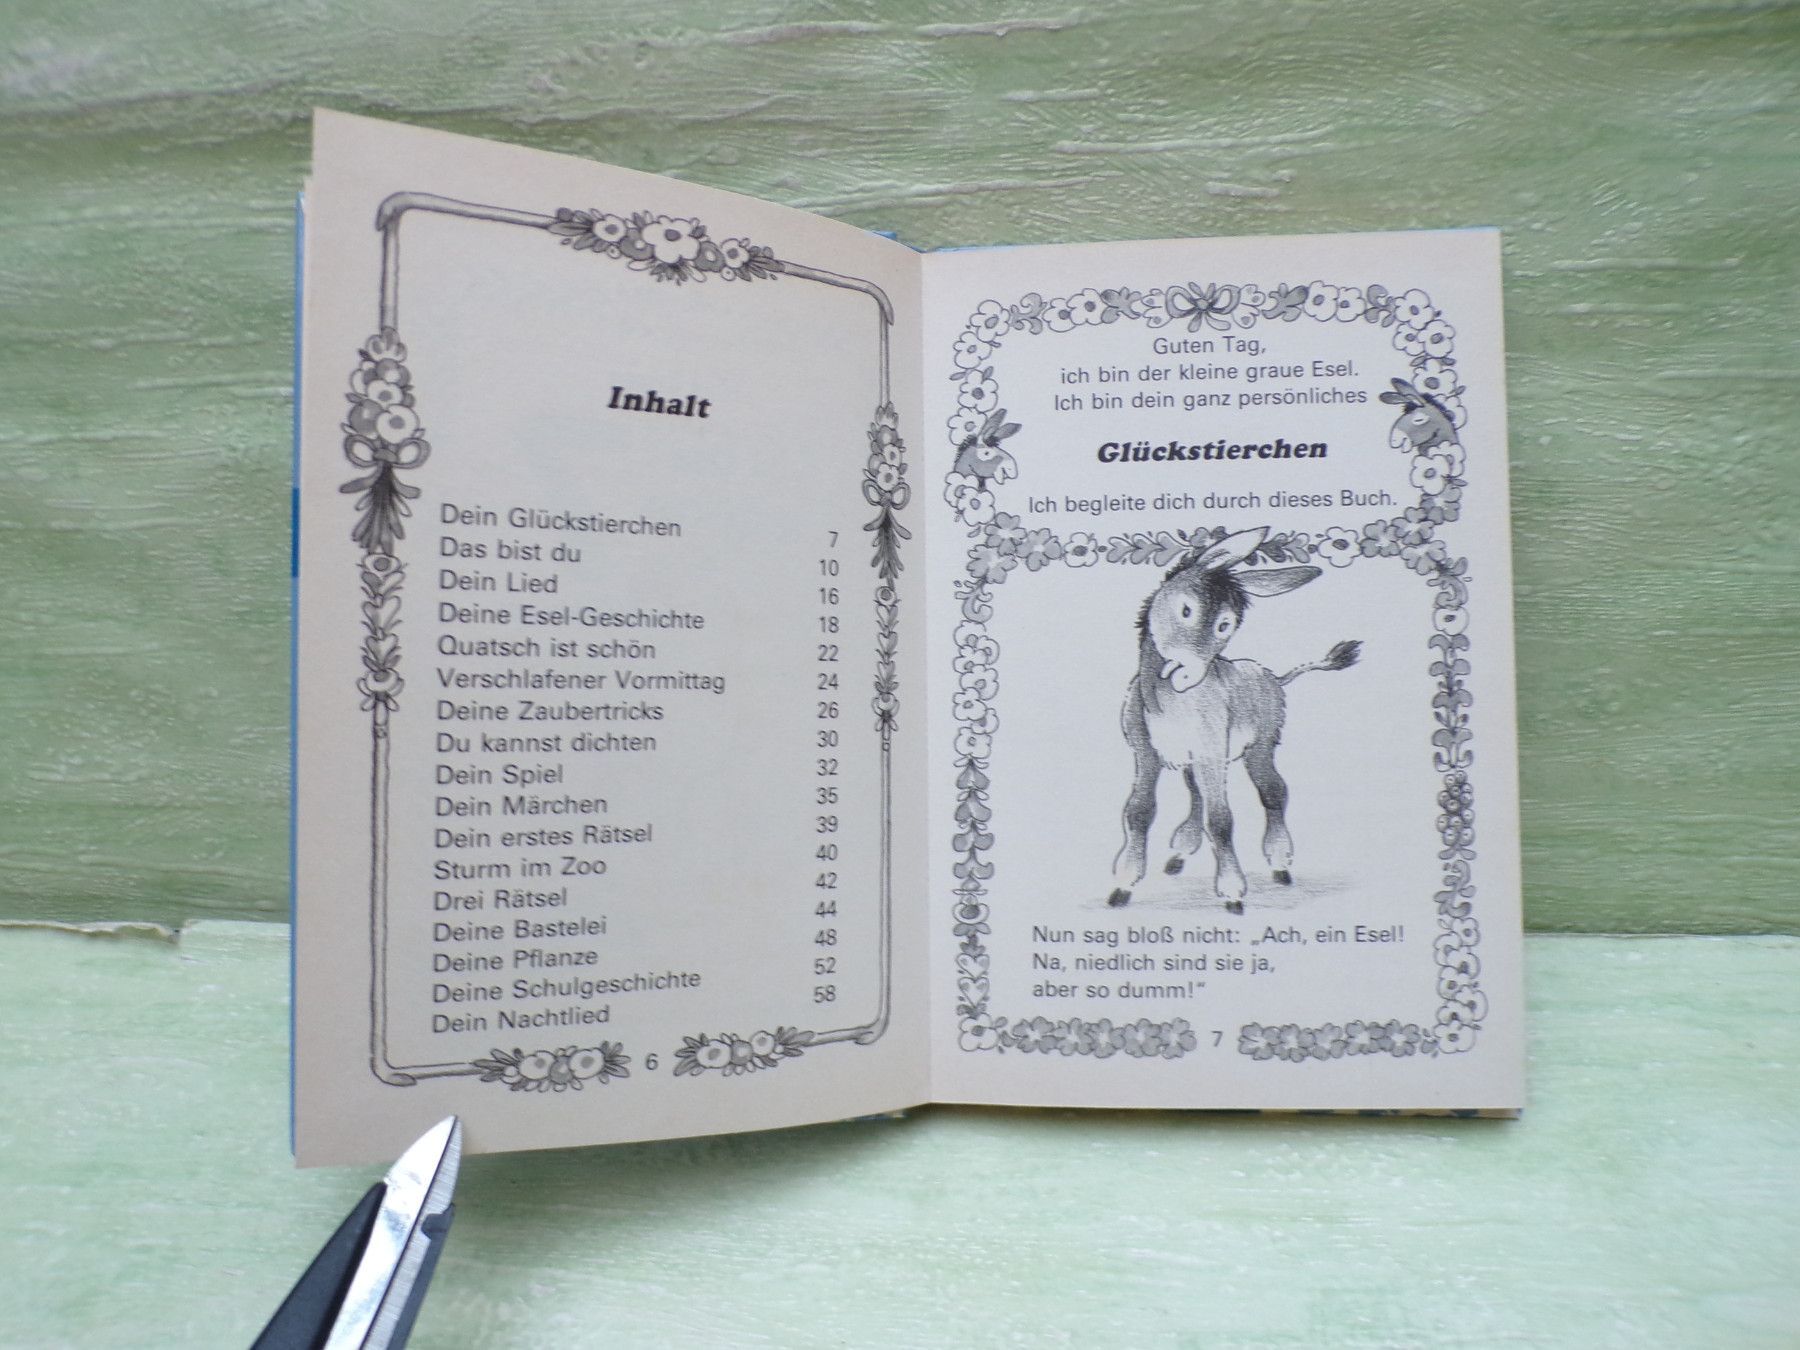 Inhalt
Dein Glückstierchen 7
Das bist du 10
Dein Lied 16
Deine Esel-Geschichte 18
Quatsch ist schön 22
Verschlafener Vormittag 24
Deine Zaubertricks 26
Du kannst dichten 30
Dein Spiel 32
Dein Märchen 35
Dein erstes Rätsel 39
Sturm im Zoo 40
Drei Rätsel 42
Deine Bastelei 44
Deine Pflanze 48
Deine Schulgeschichte 52
Dein Nachtlied 58
6
Guten Tag,
ich bin der kleine graue Esel.
Ich bin dein ganz persönliches
Glückstierchen
Ich begleite dich durch dieses Buch.
Nun sag bloß nicht: „Ach, ein Esel!
Na, niedlich sind sie ja,
aber so dumm!“
7